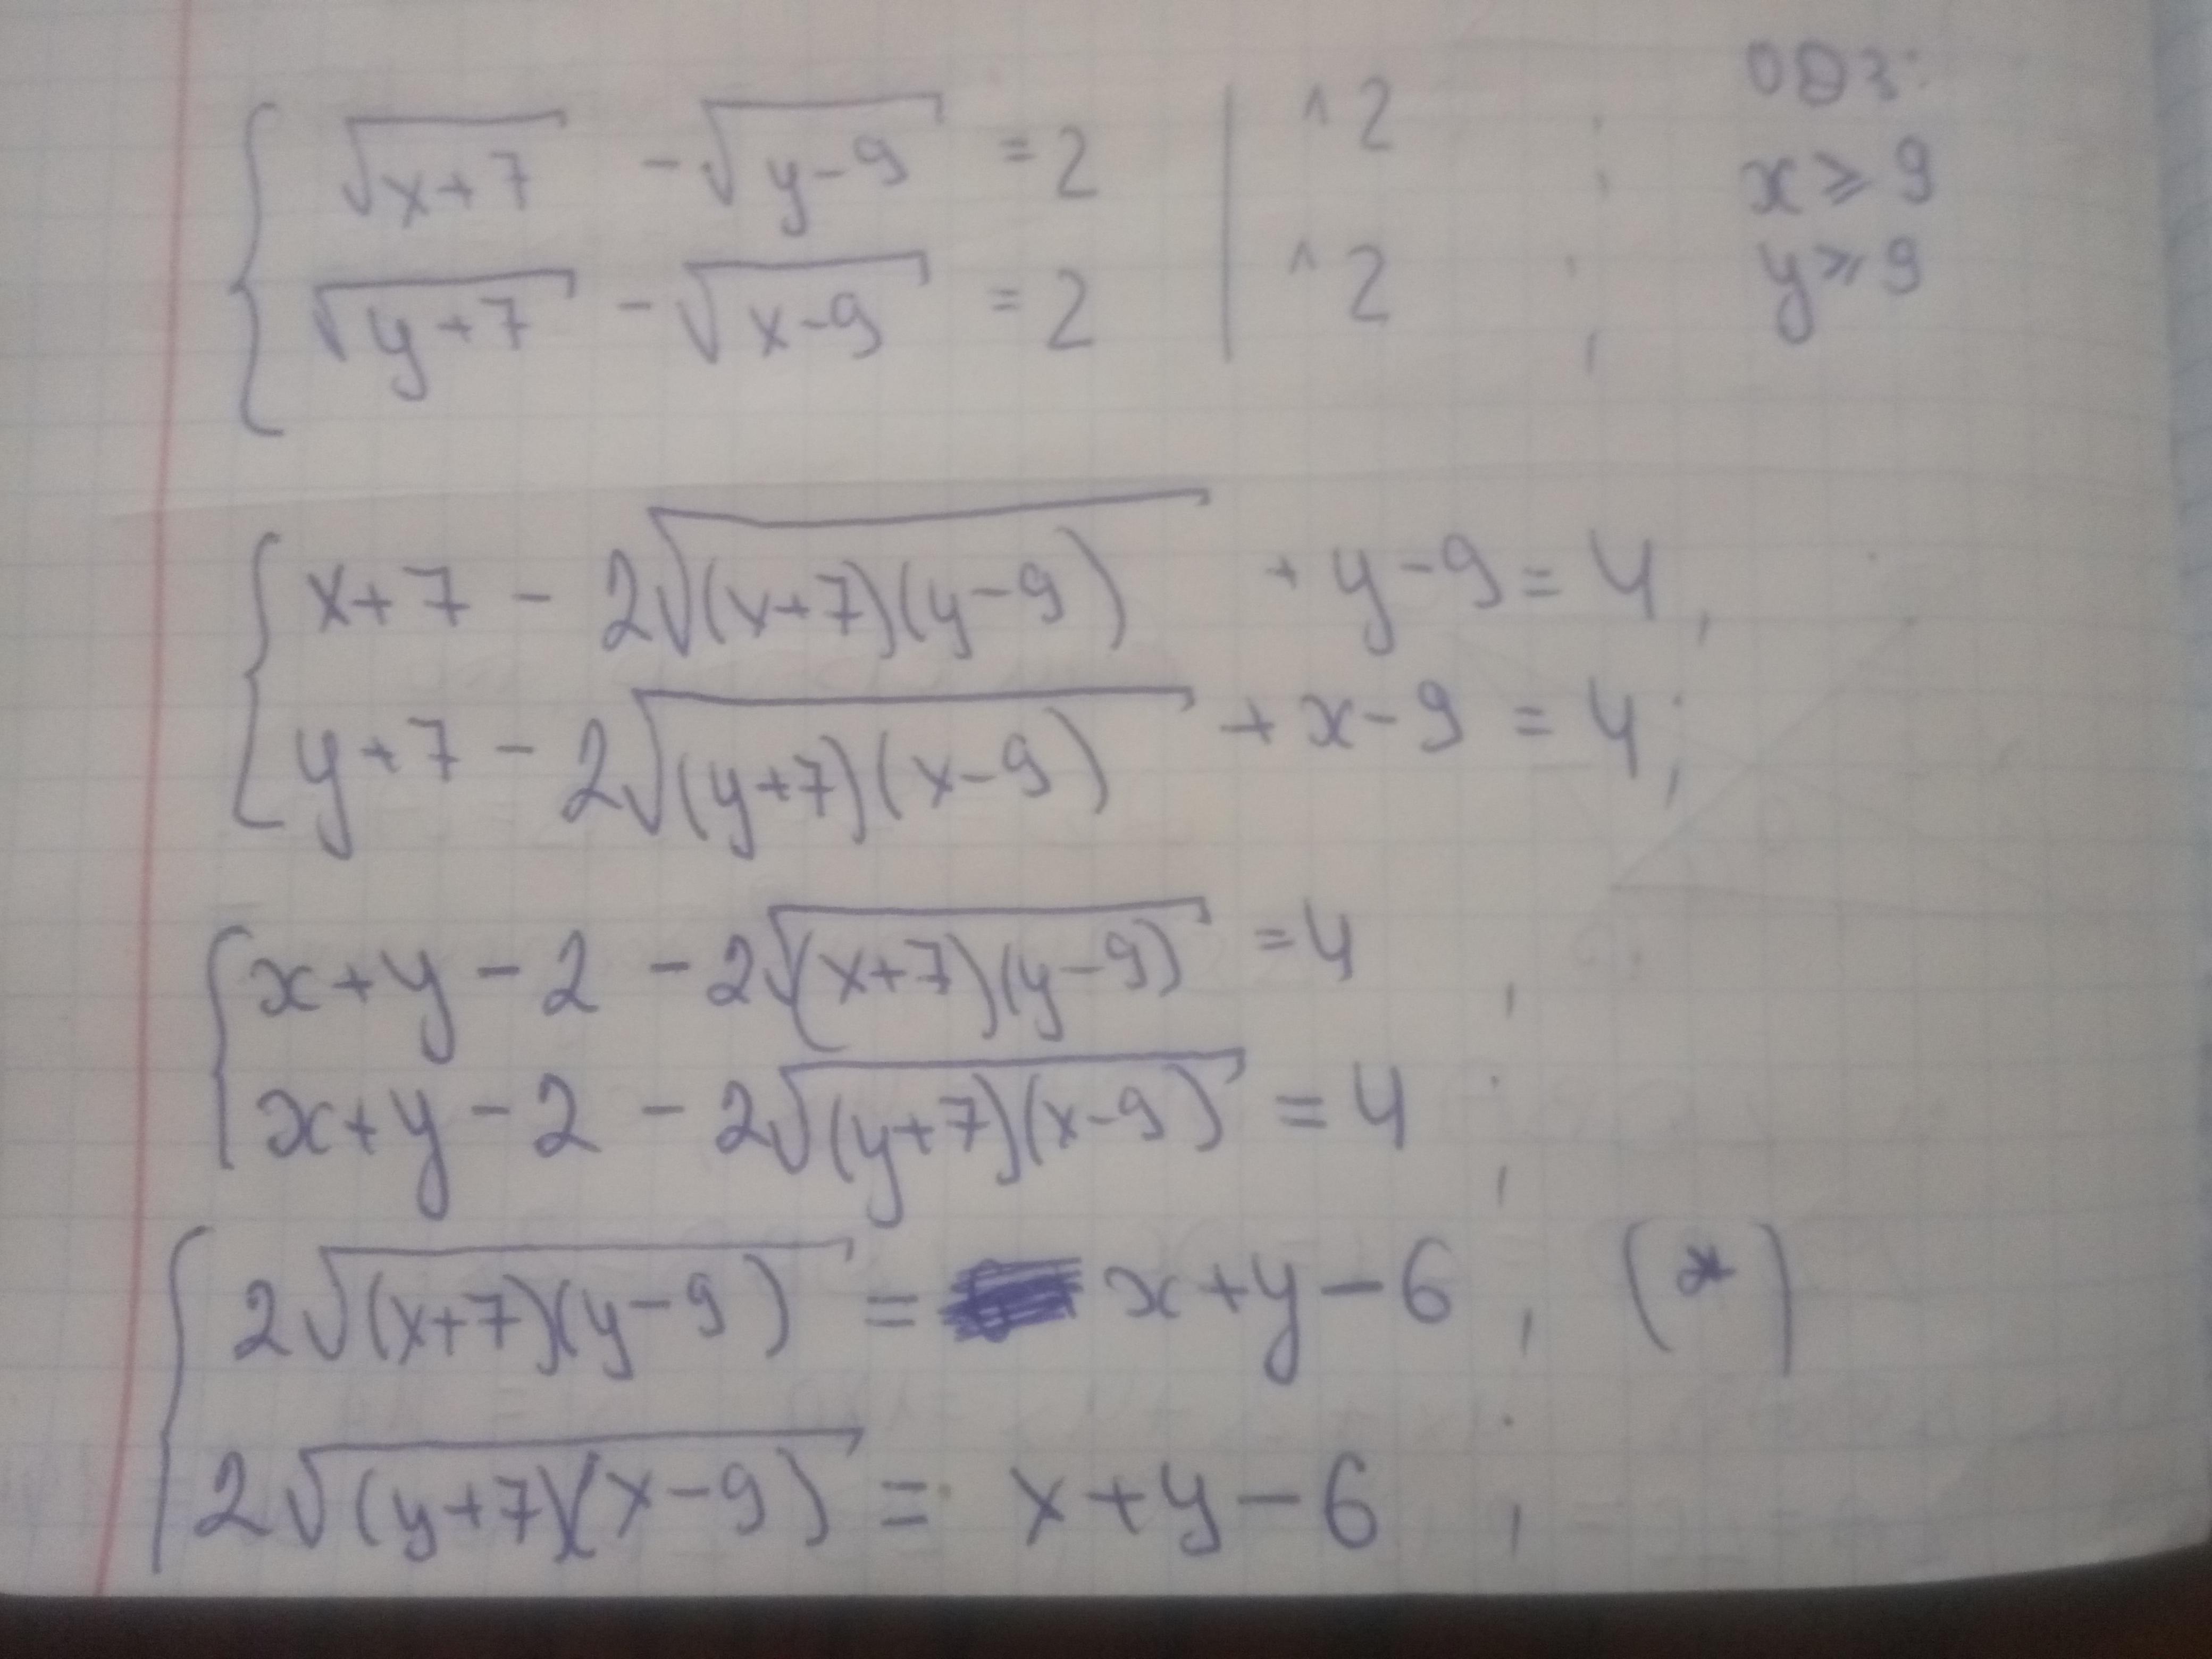 ОДЗ:
√(x+7) - √(y-9) = 2 | ^2 ; x ⩾ 9
√(y+7) - √(x-9) = 2 | ^2 ; y ⩾ 9
x+7 - 2√((x+7)(y-9)) + y-9 = 4,
y+7 - 2√((y+7)(x-9)) + x-9 = 4;
x+y-2 - 2√((x+7)(y-9)) = 4,
x+y-2 - 2√((y+7)(x-9)) = 4;
2√((x+7)(y-9)) = x+y-6, (*)
2√((y+7)(x-9)) = x+y-6;